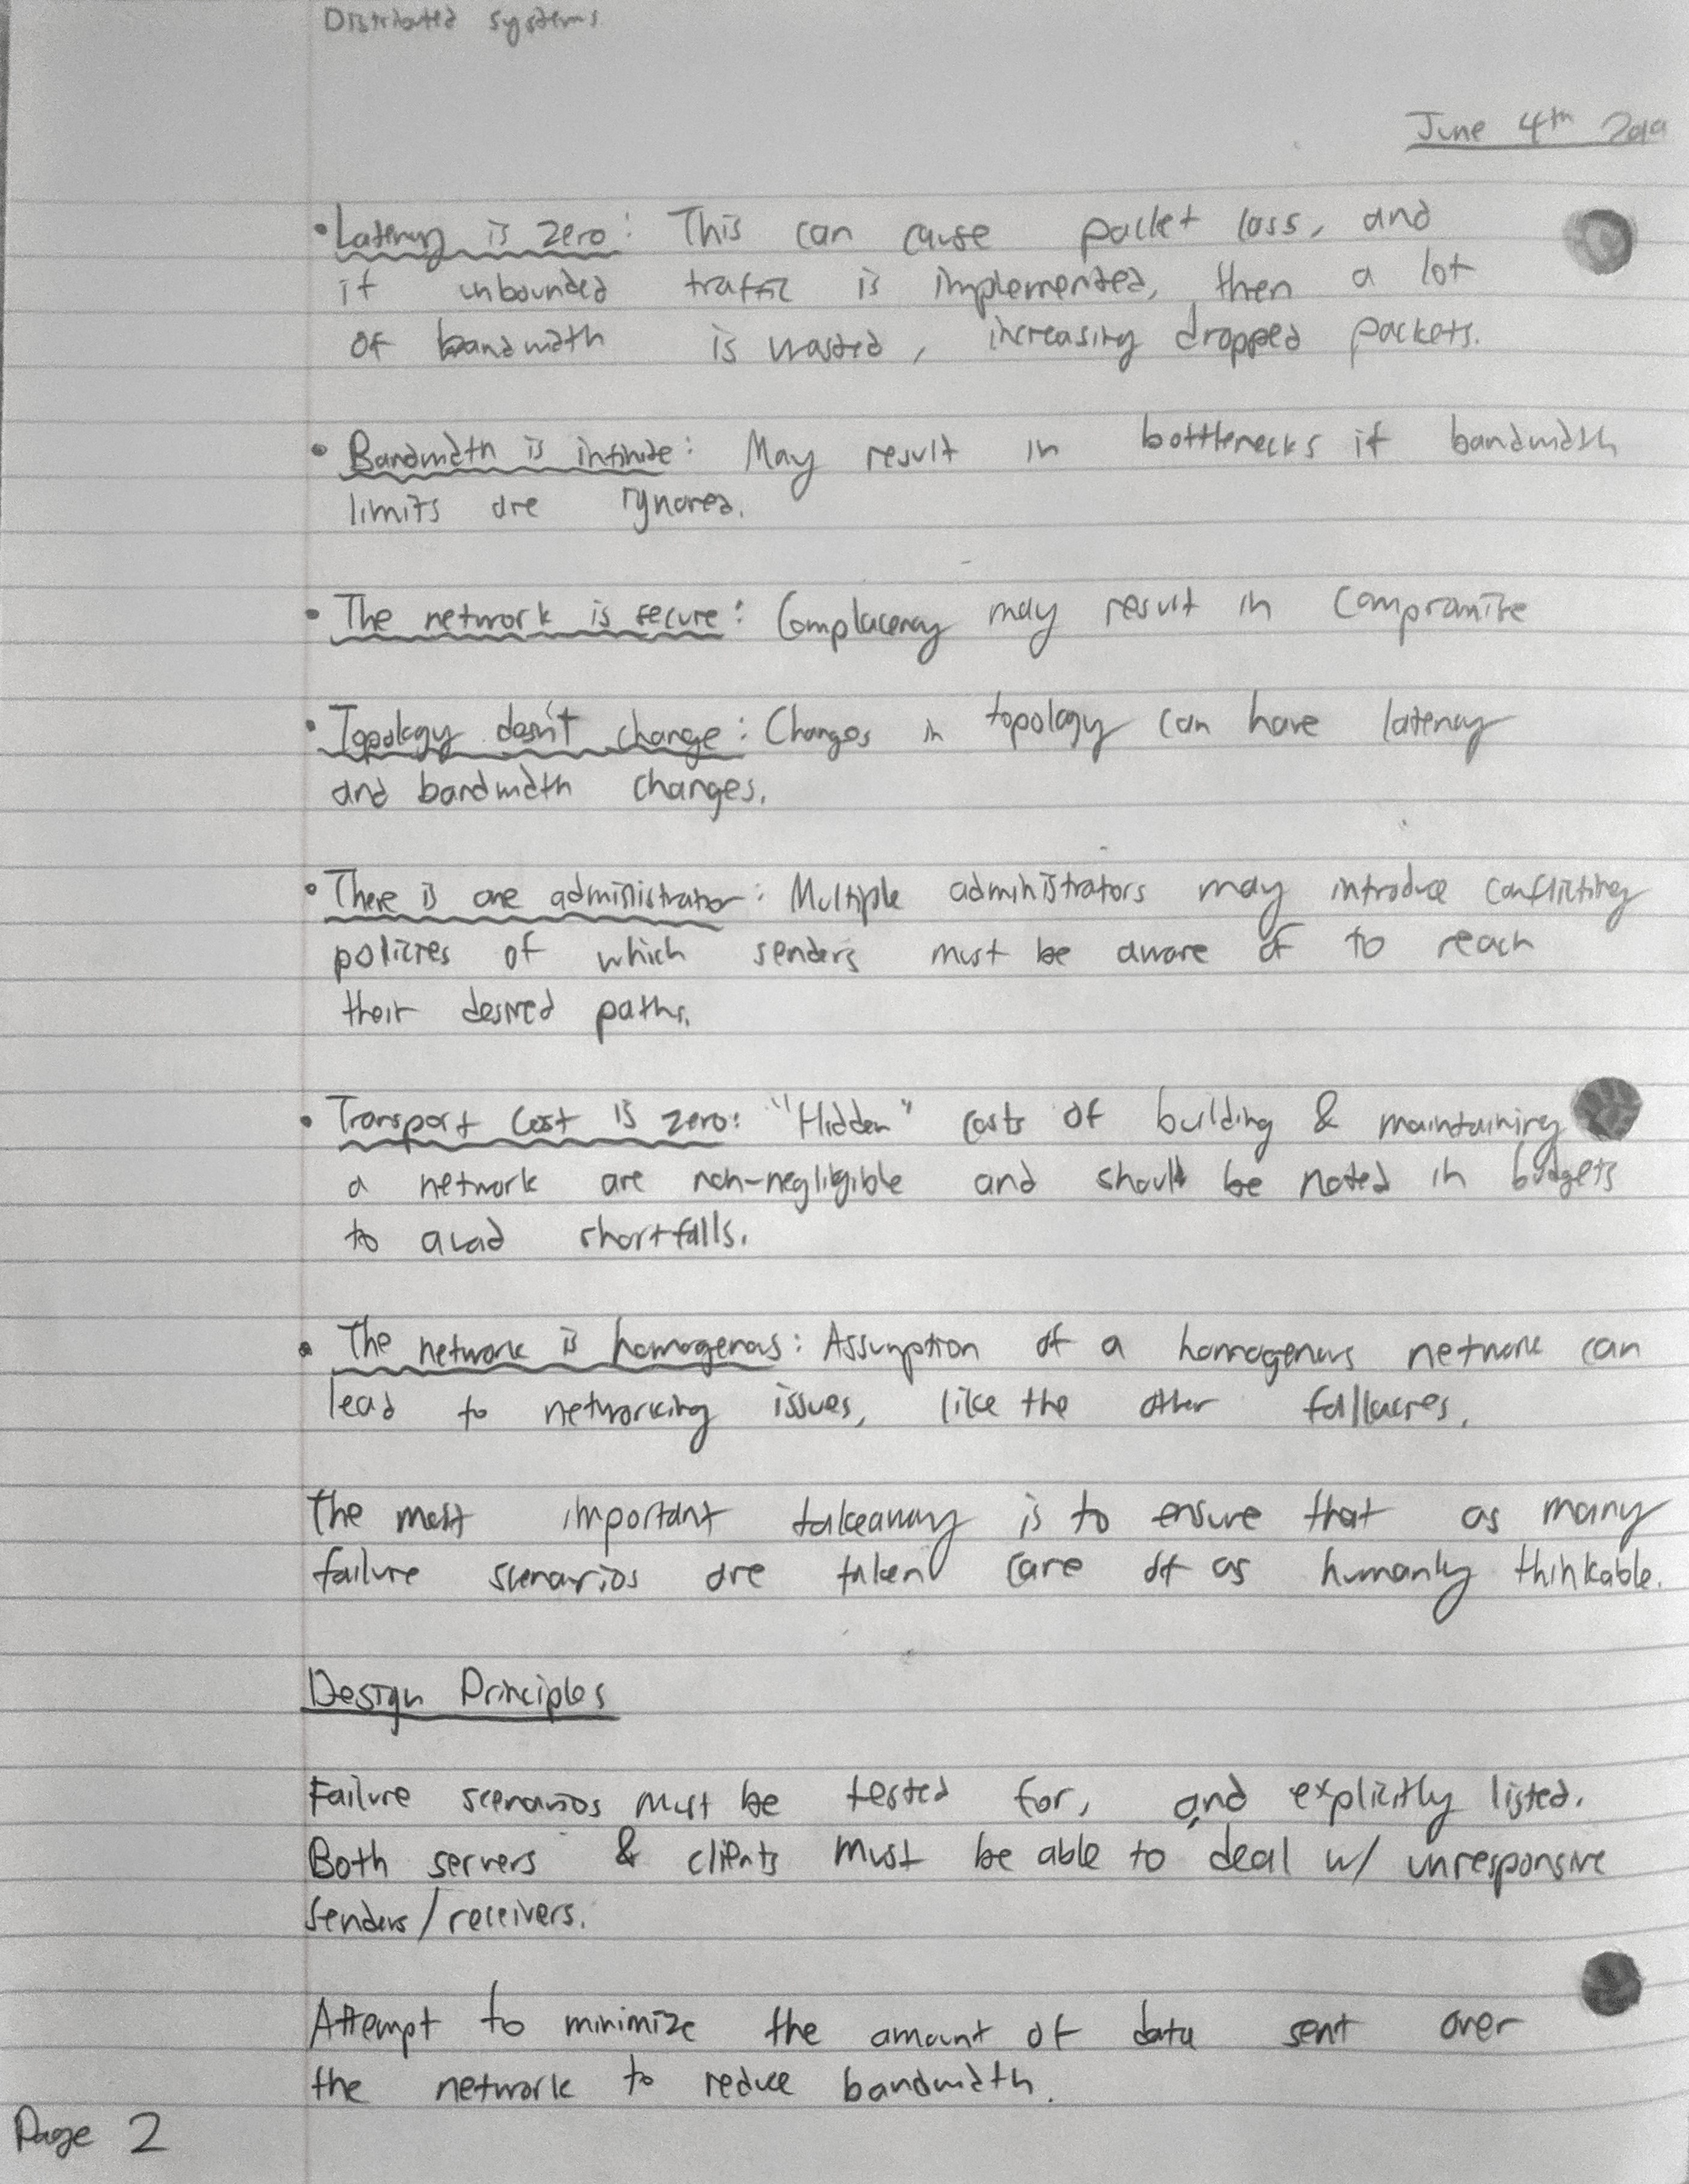 Distributed systems
June 4th
• Latency is zero: This can cause packet loss, and
if unbounded traffic is implemented, then a lot
of bandwidth is wasted, increasing dropped packets.
• Bandwidth is infinite: May result in bottlenecks if bandwidth
limits are ignored.
• The network is secure: Complacency may result in compromise
• Topology doesn't change: Changes in topology can have latency
and bandwidth changes.
• There is one administrator: Multiple administrators may introduce conflicting
policies of which senders must be aware of to reach
their desired paths.
• Transport Cost is zero: "Hidden" costs of building & maintaining
a network are non-negligible and should be noted in budgets
to avoid shortfalls.
• The network is homogenous: Assumption of a homogenous network can
lead to networking issues, like the other fallacies.
The most important takeaway is to ensure that as many
failure scenarios are taken care of as humanly thinkable.
Design Principles
Failure scenarios must be tested for, and explicitly listed.
Both servers & clients must be able to deal w/ unresponsive
senders/receivers.
Attempt to minimize the amount of data sent over
the network to reduce bandwidth.
Page 2